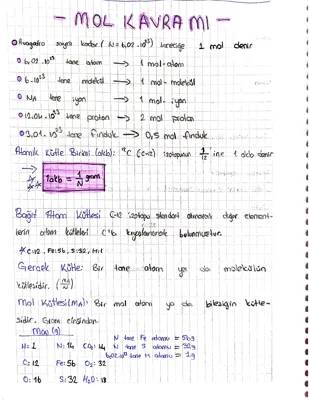 - MOL KAVRAMI -
Avagadro sayısı kadar (N=6,02.10²³) taneciğe 1 mol denir
6,02.10²³ tane atom → 1 mol-atom
6.10²³ tane molekül → 1 mol-molekül
NA tane iyon → 1 mol-iyon
12,04.10²³ tane proton → 2 mol proton
3,01.10²³ tane fındık → 0,5 mol fındık
Atomik Kütle Birimi (akb): ¹²C (C-12) izotopunun 1/12 'ine 1 akb denir
1akb = 1/N gram
Bağıl Atom Kütlesi C-12 izotopu standart alınarak diğer element-
lerin atom kütleleri C-12 kıyaslanarak bulunmuştur.
C:12, Fe:56, S:32, H:1
Gerçek Kütle: Bir tane atom ya da molekülün
kütlesidir. (MA/N)
Mol Kütlesi (MA): Bir mol atom ya da bileşiğin kütle-
sidir. Gram cinsinden.
MA (g)
H=1 N:14 CO₂:44 N tane Fe atomu = 56g
C:12 Fe:56 O₂:32 N tane S atomu = 32g
O:16 S:32 H₂O:18 6,02.10²³ tane H atomu = 1g